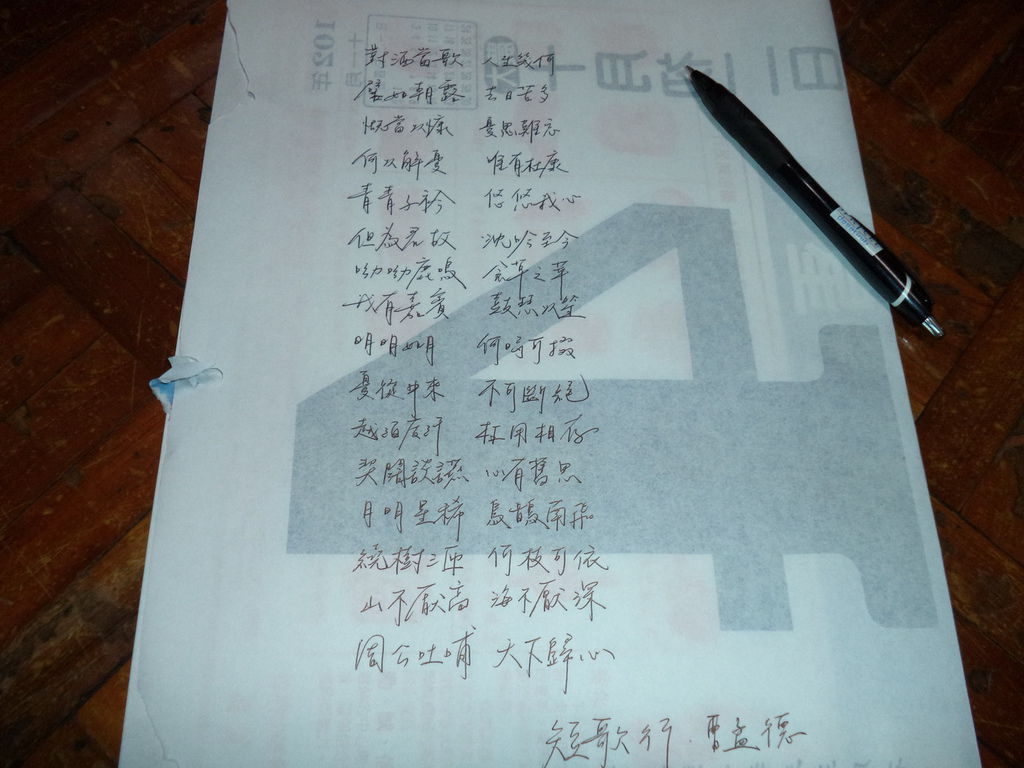 對酒當歌 人生幾何
譬如朝露 去日苦多
慨當以慷 憂思難忘
何以解憂 唯有杜康
青青子衿 悠悠我心
但為君故 沈吟至今
呦呦鹿鳴 食草之苹
我有嘉賓 鼓瑟吹笙
明明如月 何時可掇
憂從中來 不可斷絕
越陌度阡 枉用相存
契闊談讌 心有舊恩
月明星稀 烏鵲南飛
繞樹三匝 何枝可依
山不厭高 海不厭深
周公吐哺 天下歸心
短歌行．曹孟德
102年
十一月
4